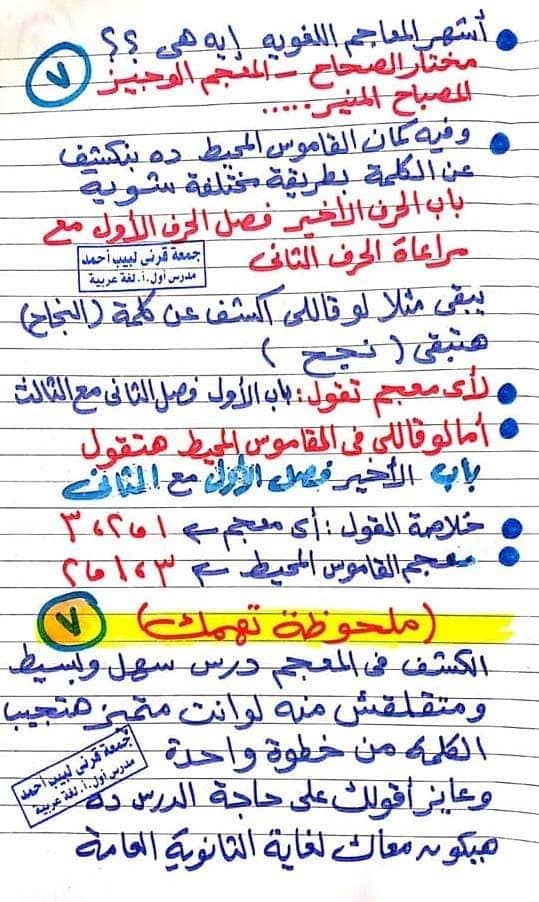 أشهر المعاجم اللغويه إيه هى ؟؟
مختار الصحاح - المعجم الوجيز
٧
المصباح المنير.....
وفيه كمان القاموس المحيط ده بنكشف
عن الكلمة بطريقة مختلفة شوية
باب الحرف الأخير فصل الحرف الأول مع
مراعاة الحرف الثانى
جمعة قرنى لبيب أحمد
مدرس أول.أ. لغة عربية
يبقى مثلا لو قاللى أكشف عن كلمة (النجاح)
هتبقى ( نجح )
لأى معجم تقول: باب الأول فصل الثانى مع الثالث
أما لو قاللى فى القاموس المحيط هتقول
باب الأخير فصل الأول مع الثانى
خلاصة القول : أى معجم ← ١ ، ٢ ، ٣
معجم القاموس المحيط ← ٣ ، ١ ، ٢
(ملحوظة تهمك) ٧
الكشف فى المعجم درس سهل وبسيط
ومتقلقش منه لو انت متميز هتجيب
الكلمه من خطوة واحدة
جمعة قرنى لبيب أحمد
مدرس أول.أ. لغة عربية
وعايز أقولك على حاجة الدرس ده
هيكون معاك لغاية الثانوية العامة